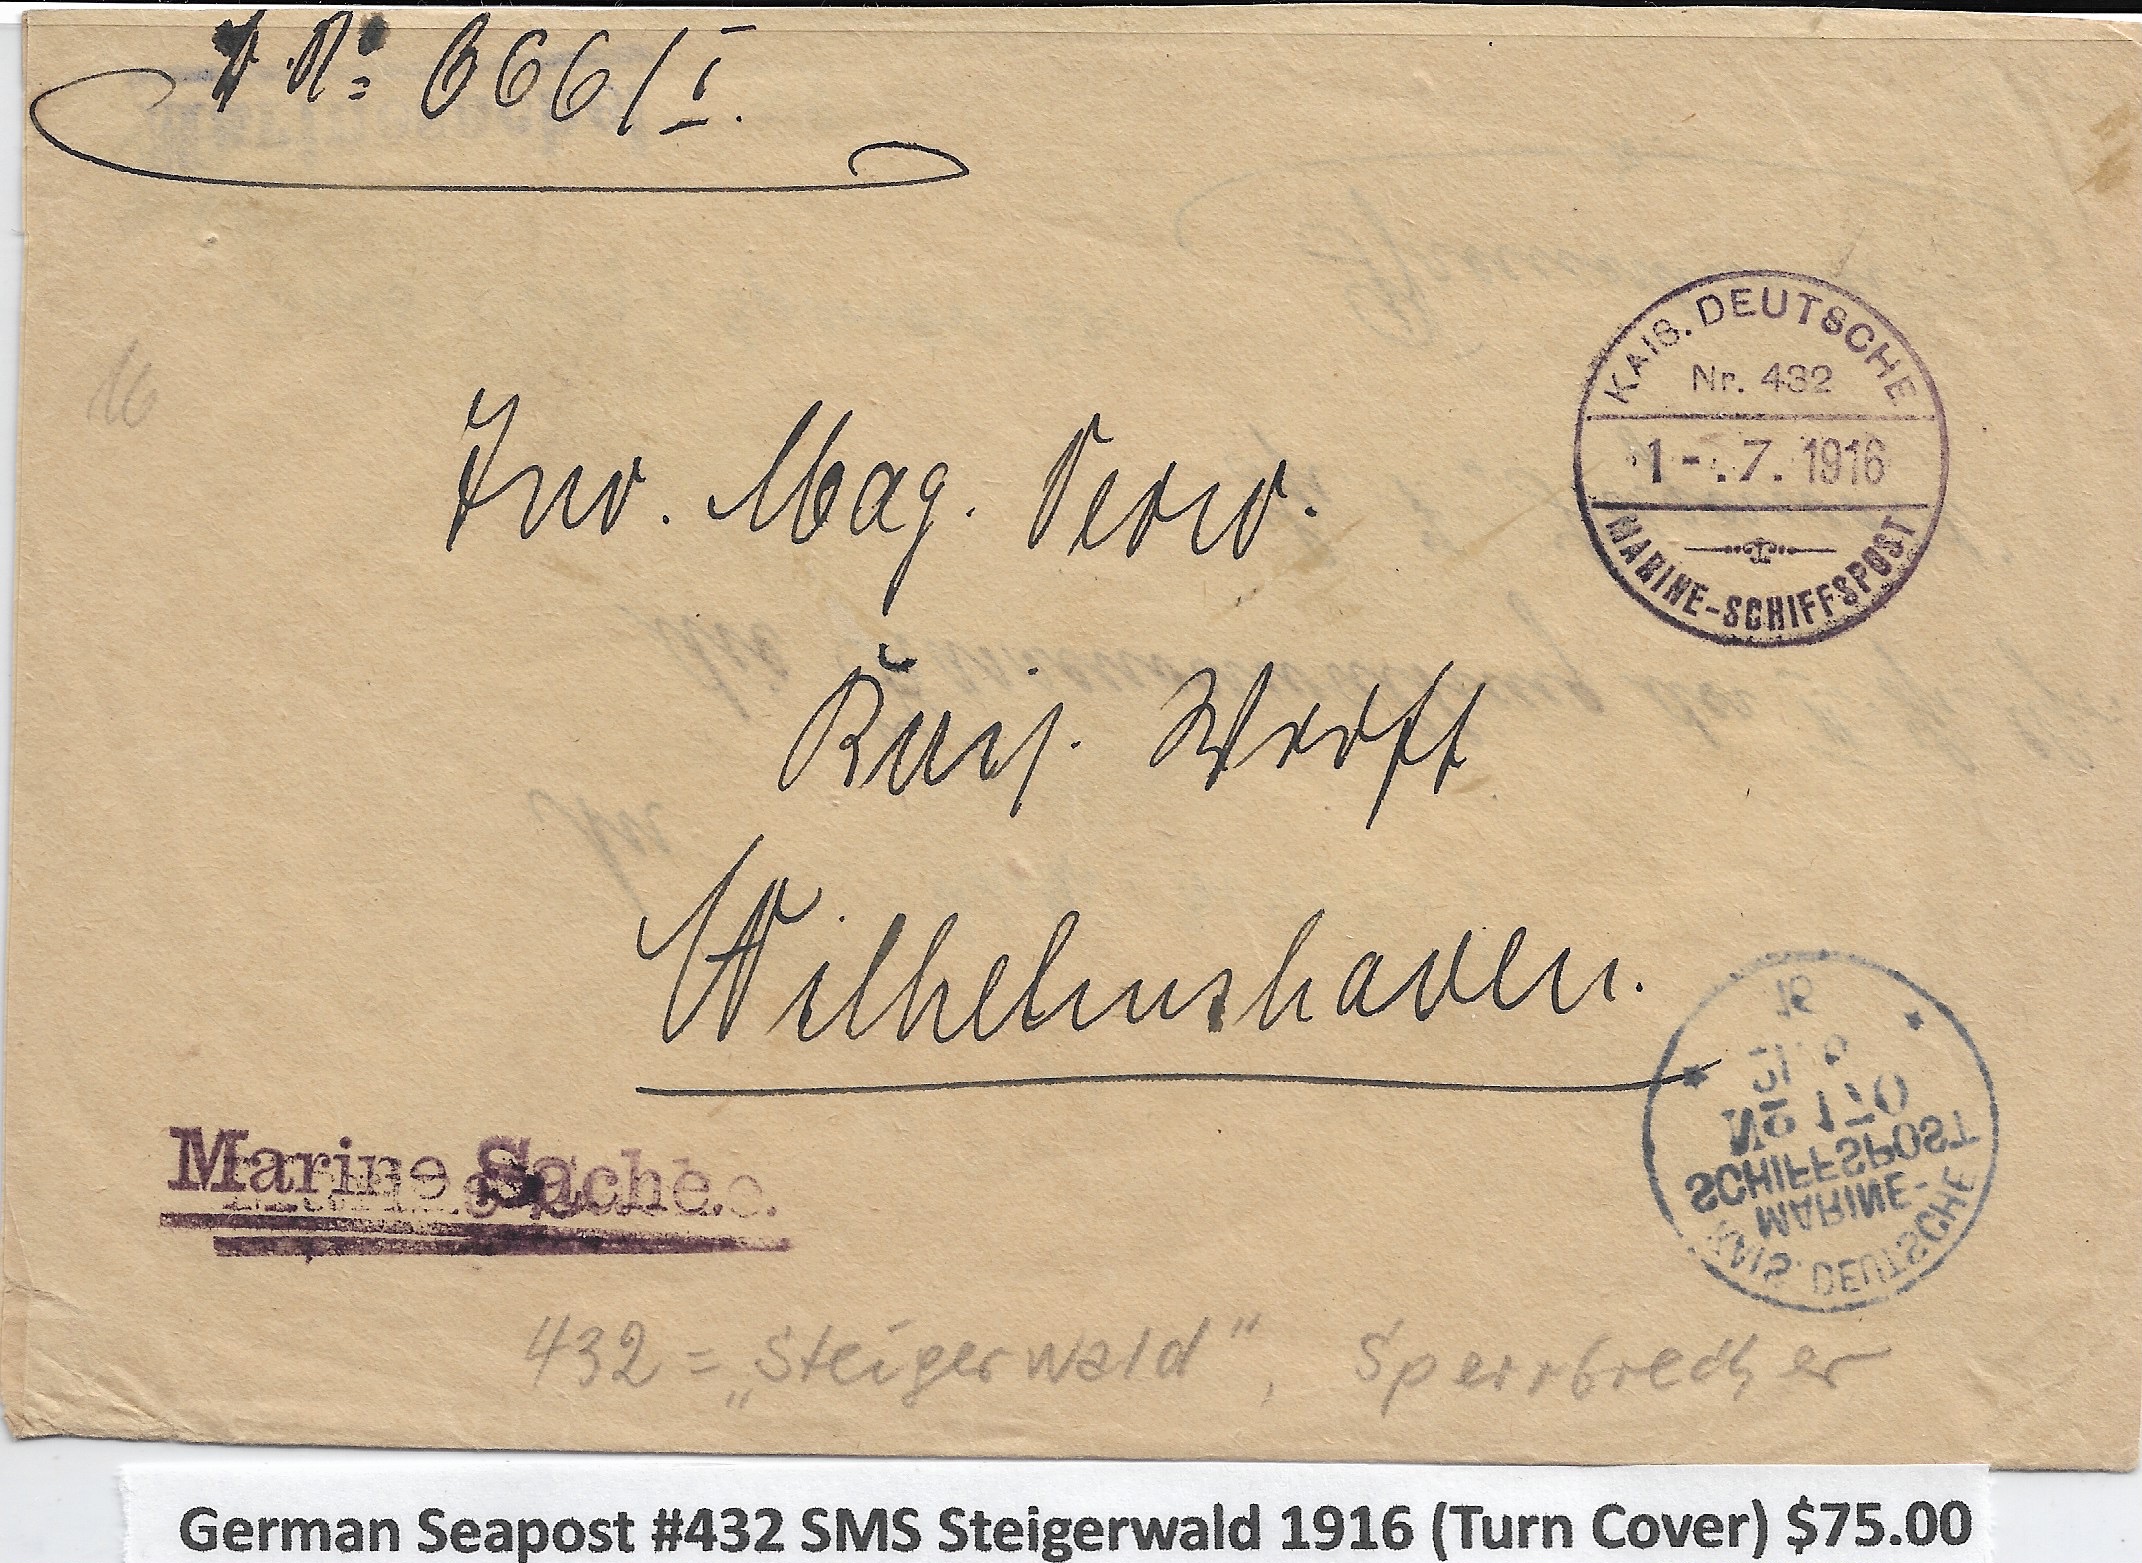 No: 666/I.
16
KAIS. DEUTSCHE
Nr. 432
1-.7.1916
MARINE-SCHIFFSPOST
Inv. Mag. Verw.
Kais. Werft
Wilhelmshaven.
Marine Sache.
KAIS. DEUTSCHE
MARINE-
SCHIFFSPOST
No 170
16
432 = „Steigerwald", Sperrbrecher
German Seapost #432 SMS Steigerwald 1916 (Turn Cover) $75.00